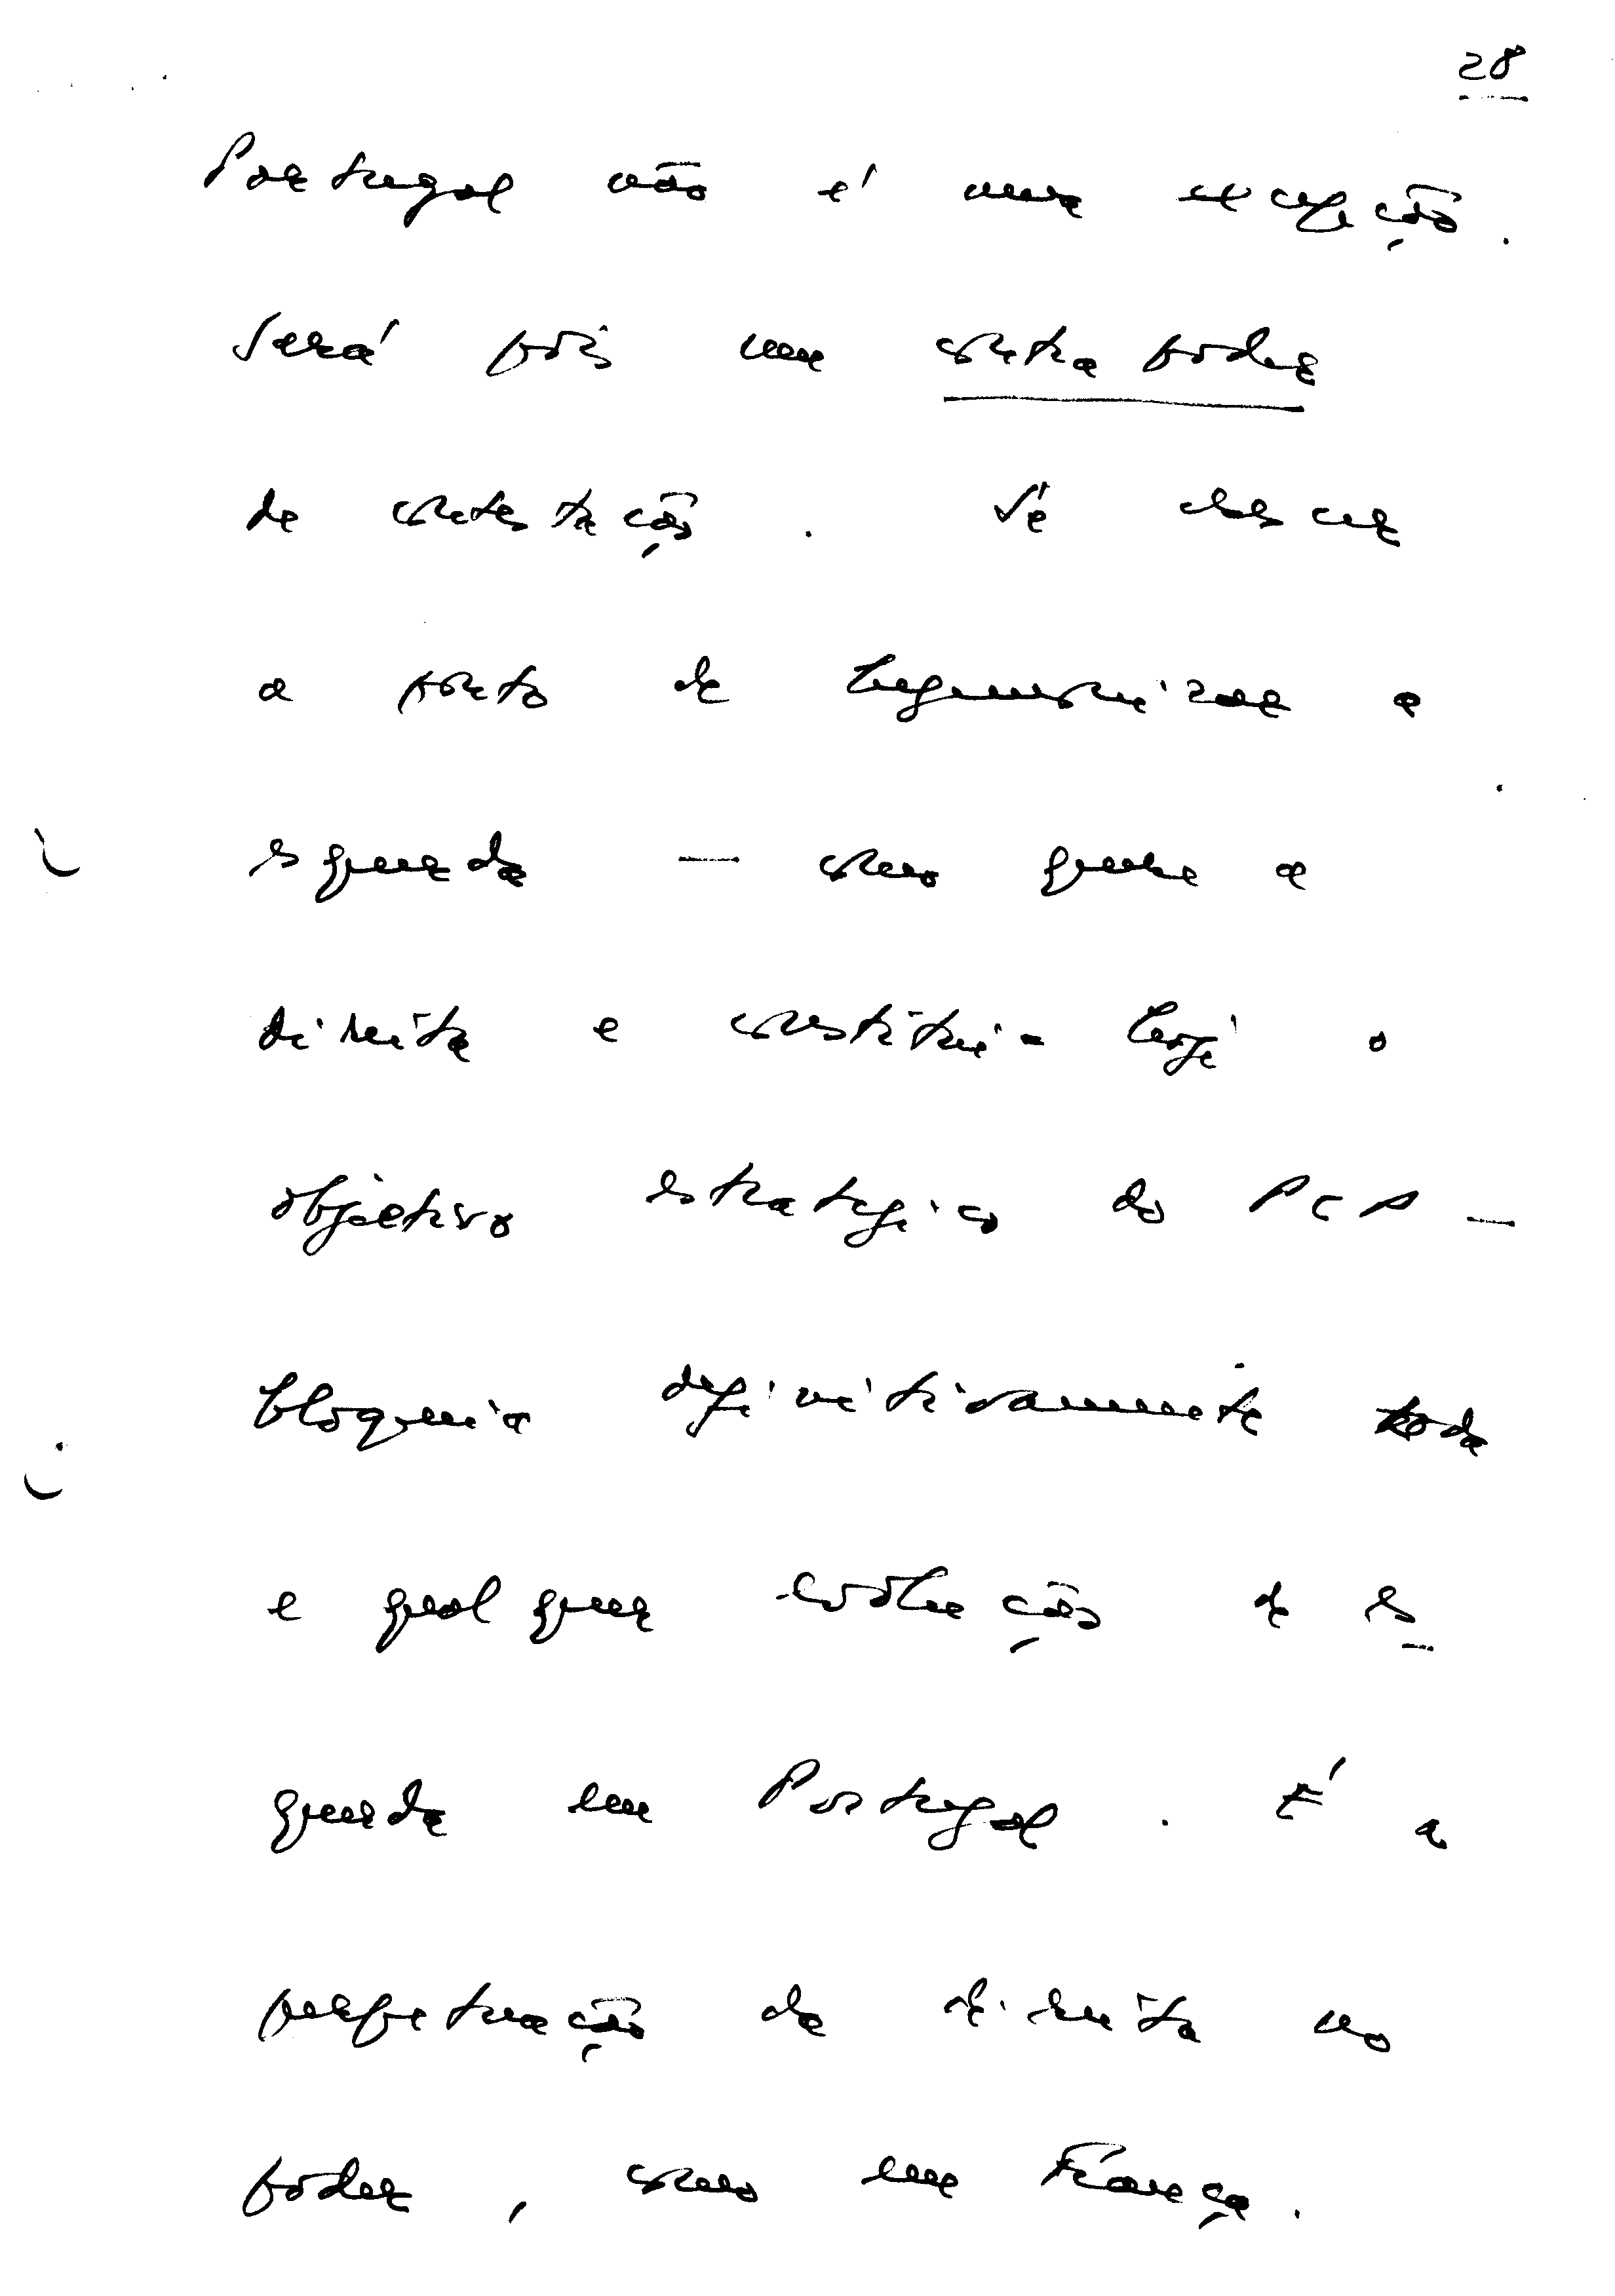 28
Portugal não é uma excepção.
Será pois um contra poder
de contestação. Se crescer
a ponto de hegemonizar a
esquerda — como quere a
direita e constitui hoje o
objectivo estratégico do PCP —
bloqueia definitivamente toda
e qualquer evolução de es
querda em Portugal. É a
perpetuação da direita no
poder, como em França.